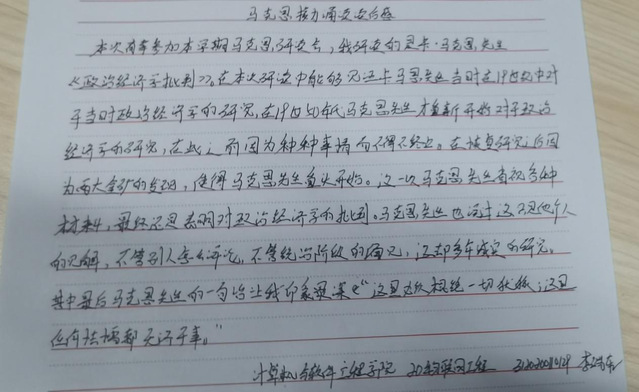 马克思接力诵读读后感
本次有幸参加本学期马克思研读会，我研读的是卡·马克思先生
《政治经济学批判》。在本次研读中能够见证卡马克思先生当时在19世纪中对
于当时政治经济学的研究，在19世纪 马克思先生才重新开始对于政治
经济学的研究，在此之前因为种种事情而不得不终止。在恢复研究之后因
为两大金矿的发现，使得马克思先生重头开始。这一次马克思先生看视各种
材料，最终还是表明对政治经济学的批判。马克思先生也说过这只是他个人
的见解，不管别人怎么评论，不管统治阶级的偏见，这却多年诚实的研究。
其中最后马克思先生的一句话让我印象最深是"这里必须根绝一切犹豫；这里
任何怯懦都无济于事。"
计算机与软件工程学院 20物联网工程 李